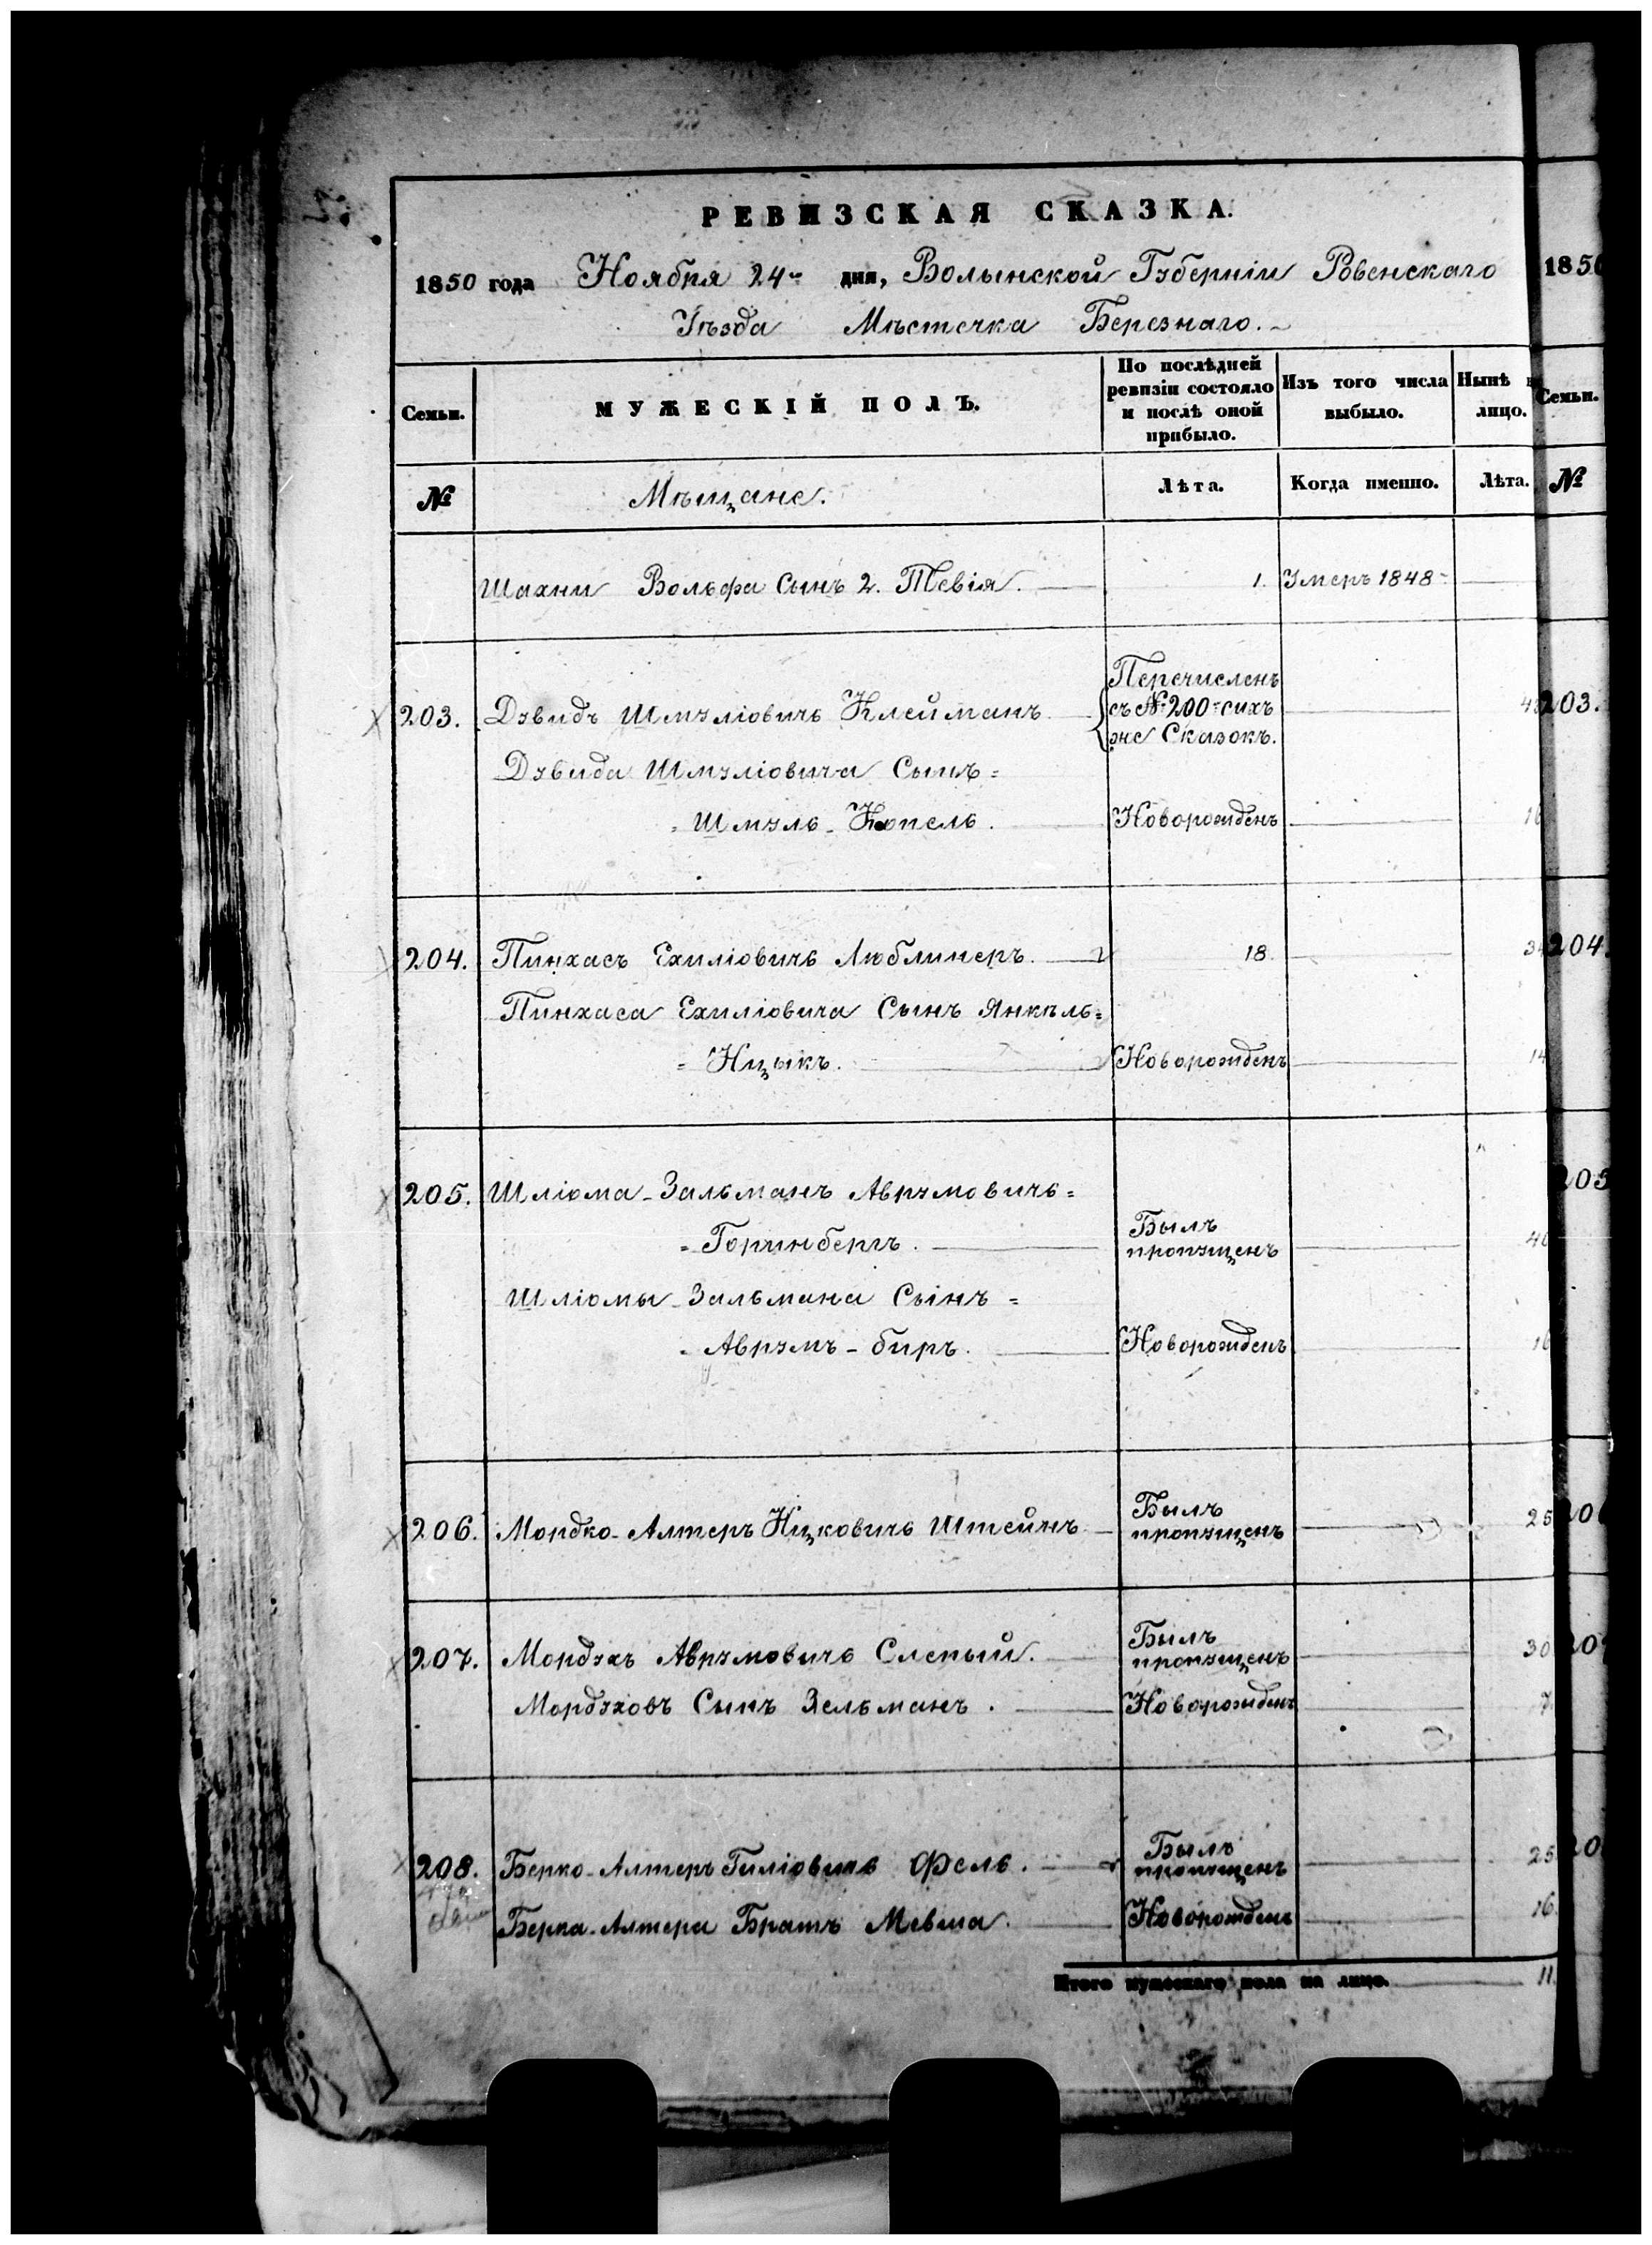 РЕВИЗСКАЯ СКАЗКА.
1850 года Ноября 24 дня, Волынской Губерніи Ровенскаго
Уѣзда Мѣстечка Березнаго.
Семьи.
МУЖЕСКІЙ ПОЛЪ.
По послѣдней
ревизіи состояло
и послѣ оной
прибыло.
Изъ того числа
выбыло.
Нынѣ
лицо.
№
Мѣщане.
Лѣта.
Когда именно.
Лѣта.
Шахни Вольфа Сынъ 2. Тевія. 1. Умеръ 1848
203. Дувидъ Шмуліовичъ Клейманъ
Перечисленъ
съ № 200 сихъ
же Сказокъ.
Дувида Шмуліовича Сынъ=
=Шмуль-Копель. Новорожденъ
204. Пинхасъ Ехиліовичъ Люблинеръ. 18.
Пинхаса Ехиліовича Сынъ Янкель=
=Ицыкъ. Новорожденъ 14
205. Шліома-Зальманъ Аврумовичъ=
=Горинбергъ. Былъ
пропущенъ
Шліомы-Зальмана Сынъ=
=Аврумъ-биръ. Новорожденъ 16
206. Мордко-Алтеръ Ицковичъ Штейнъ
Былъ
пропущенъ 25
207. Мордухъ Аврумовичъ Слепый.
Былъ
пропущенъ 30
Мордуховъ Сынъ Зельманъ. Новорожденъ 7.
208. Берко-Алтеръ Гиліовичъ Фель.
Былъ
пропущенъ 25
Берка-Алтера Братъ Мевша. Новорожденъ 16.
Итого мужескаго пола на лицо. 11.
1850
Семьи.
№
203.
204.